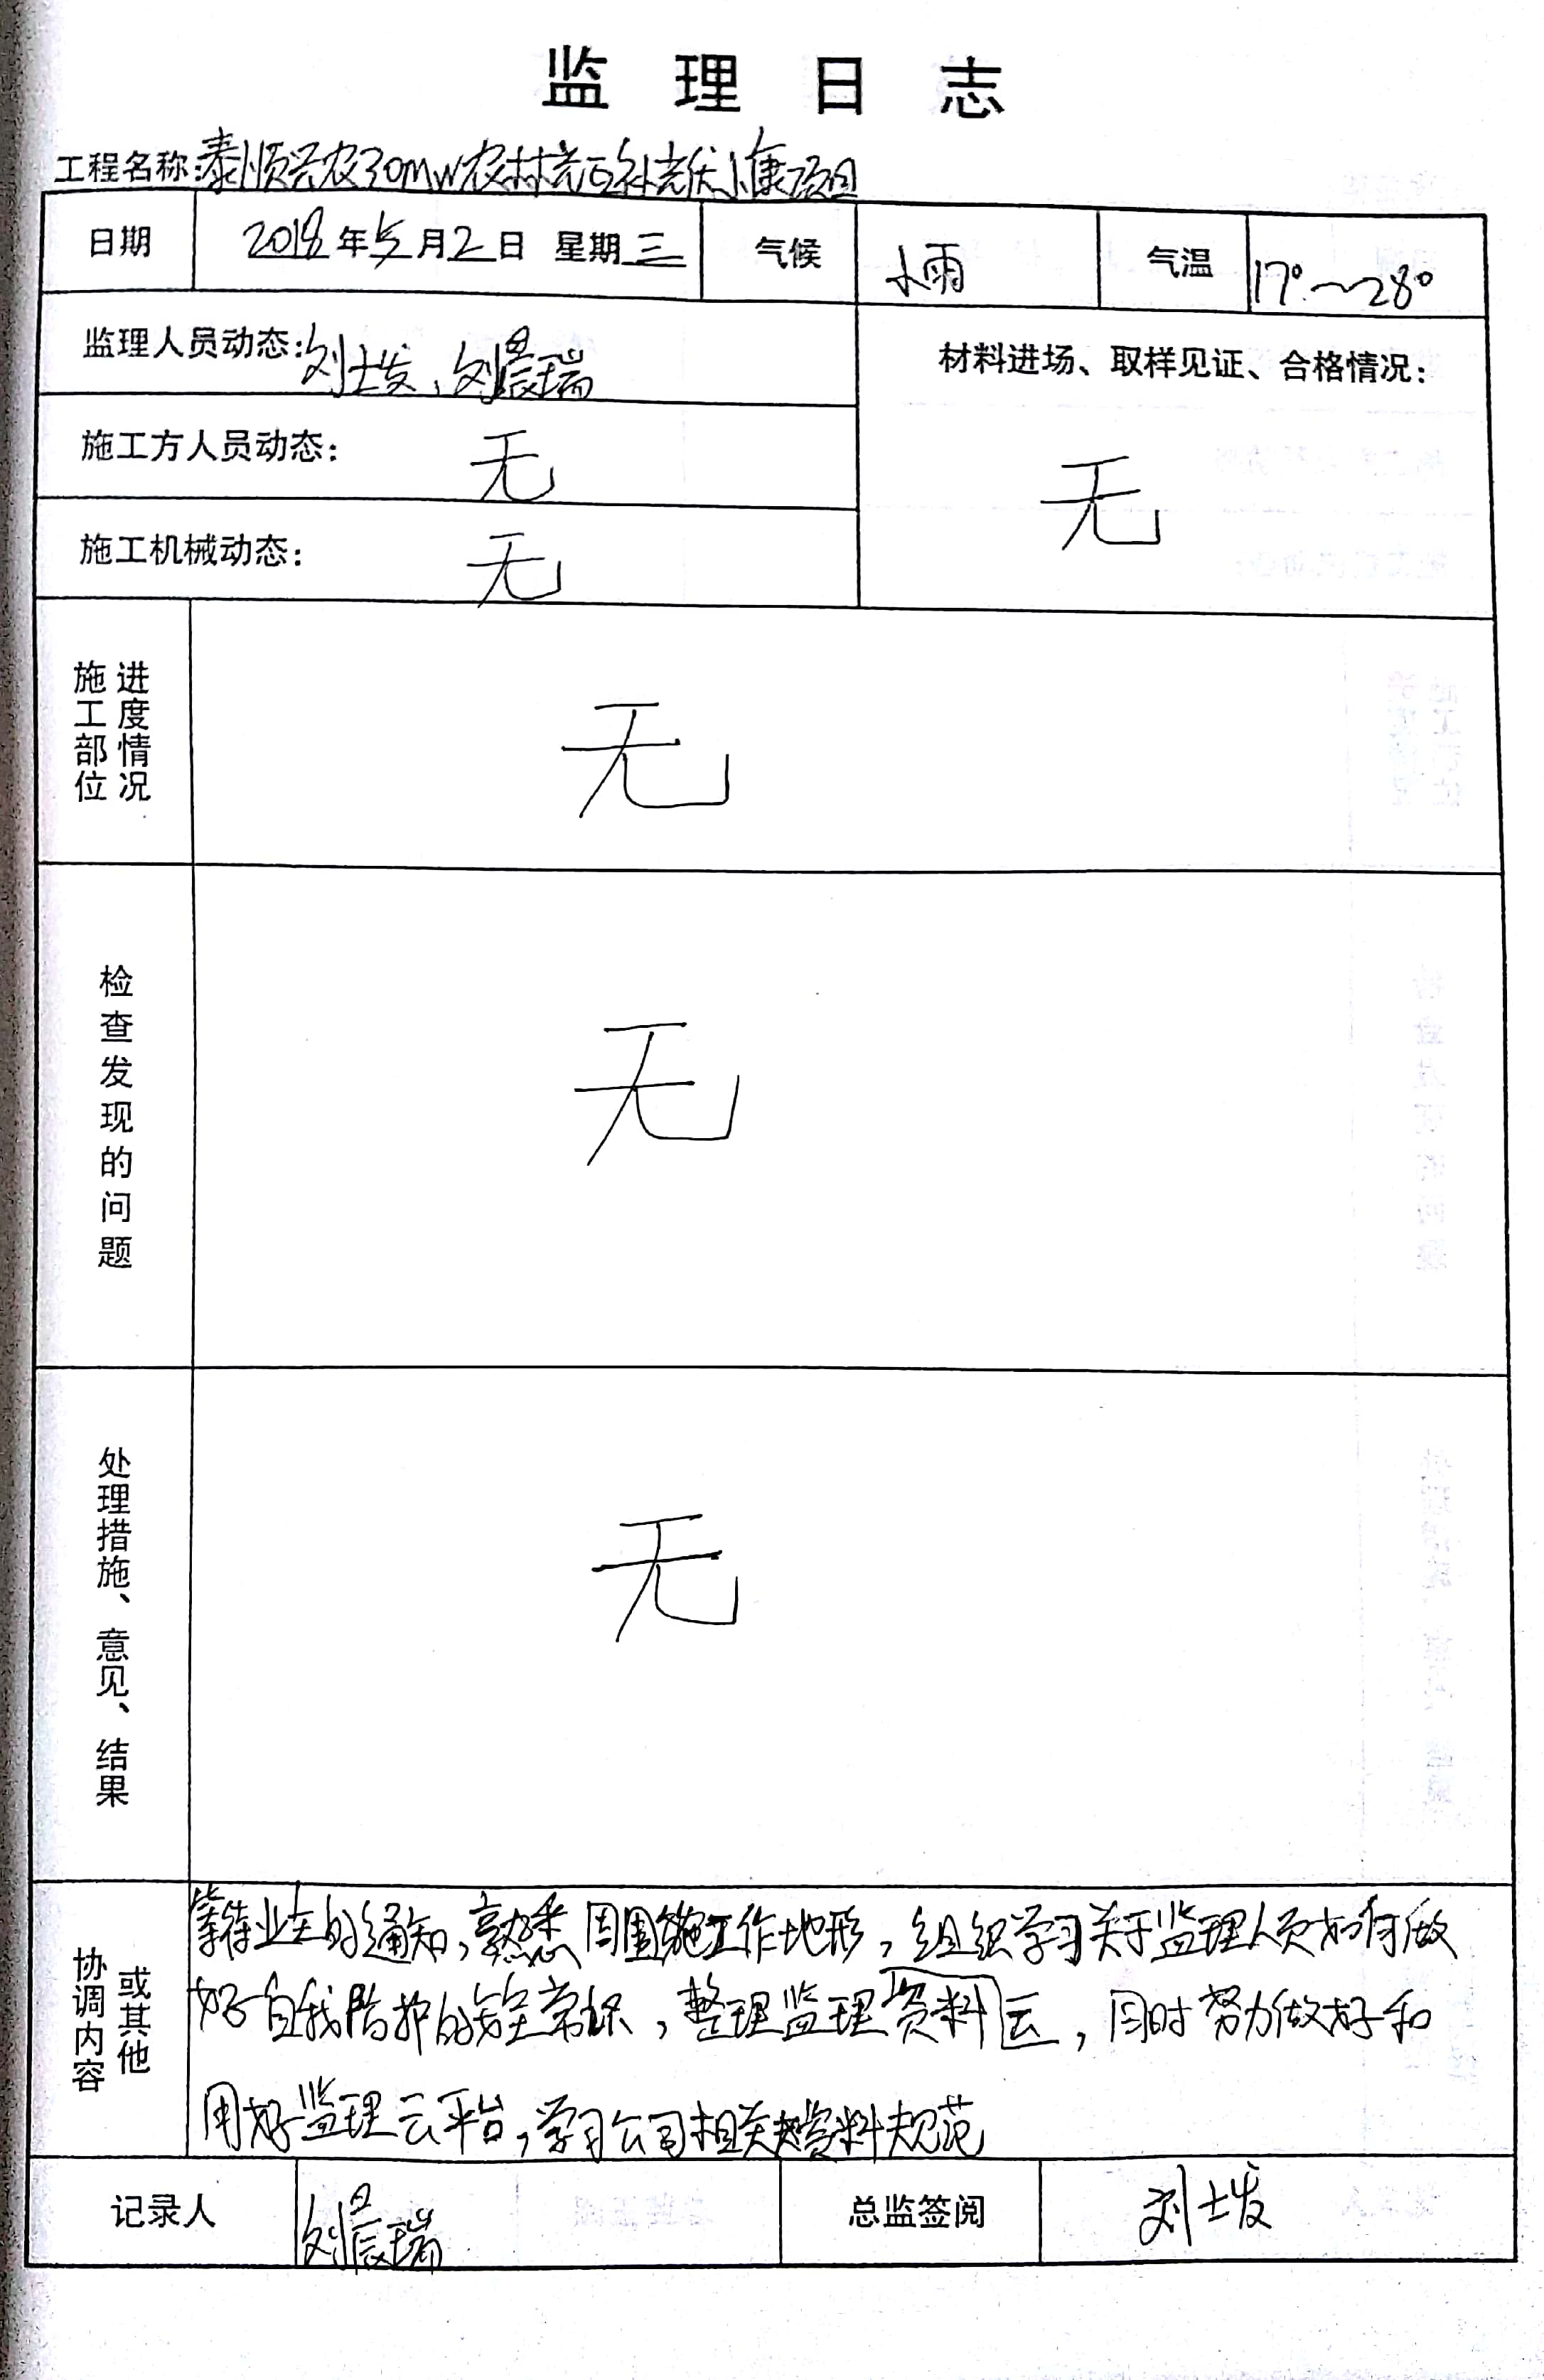 监理日志
工程名称:泰顺兴农30MW农林光互补光伏小康项目
日期 2018年5月2日 星期三 气候 小雨 气温 17°~28°
监理人员动态:刘士发、刘晨瑞
材料进场、取样见证、合格情况:
无
施工方人员动态: 无
施工机械动态: 无
施工部位
进度情况
无
检查发现的问题
无
处理措施、意见、结果
无
协调内容
或其他
等待业主的通知,熟悉周围施工作地形,组织学习关于监理人员如何做
好自我防护的安全常识,整理监理资料云,同时努力做好和
用好监理云平台,学习公司相关资料规范
记录人 刘晨瑞 总监签阅 刘士发